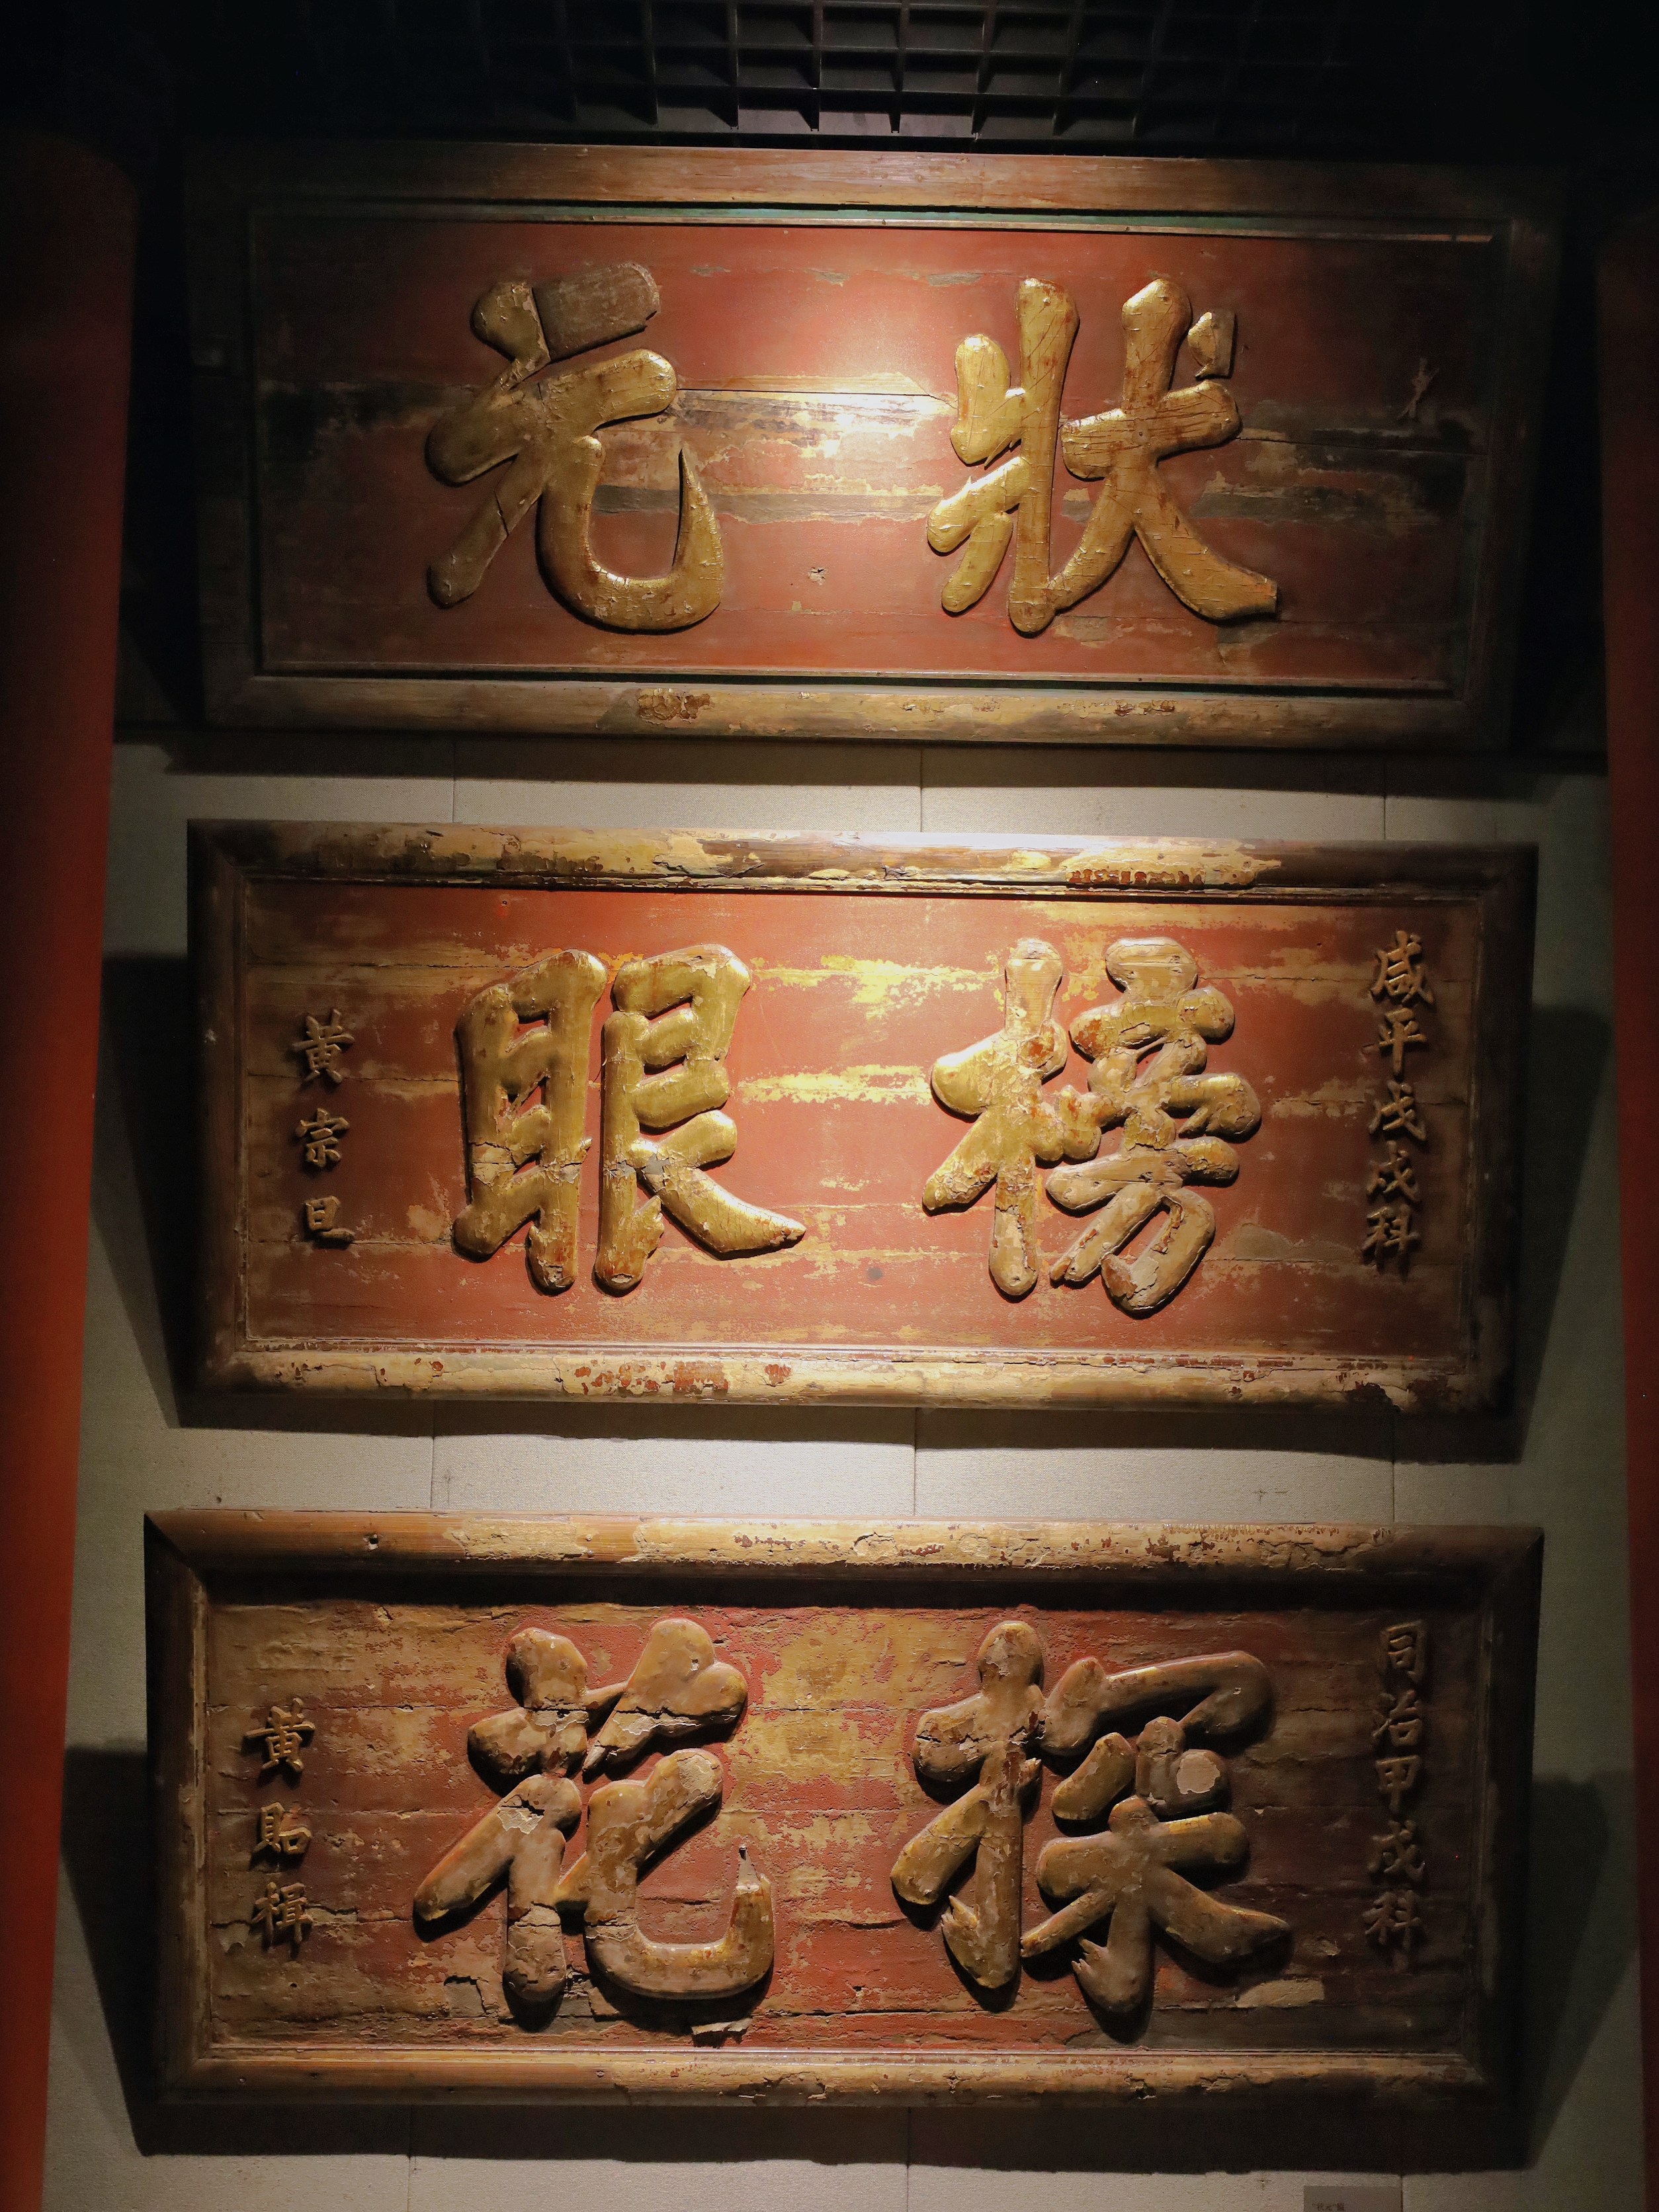 状元
咸平戊戌科
榜眼
黃宗旦
同治甲戌科
探花
黃貽楫